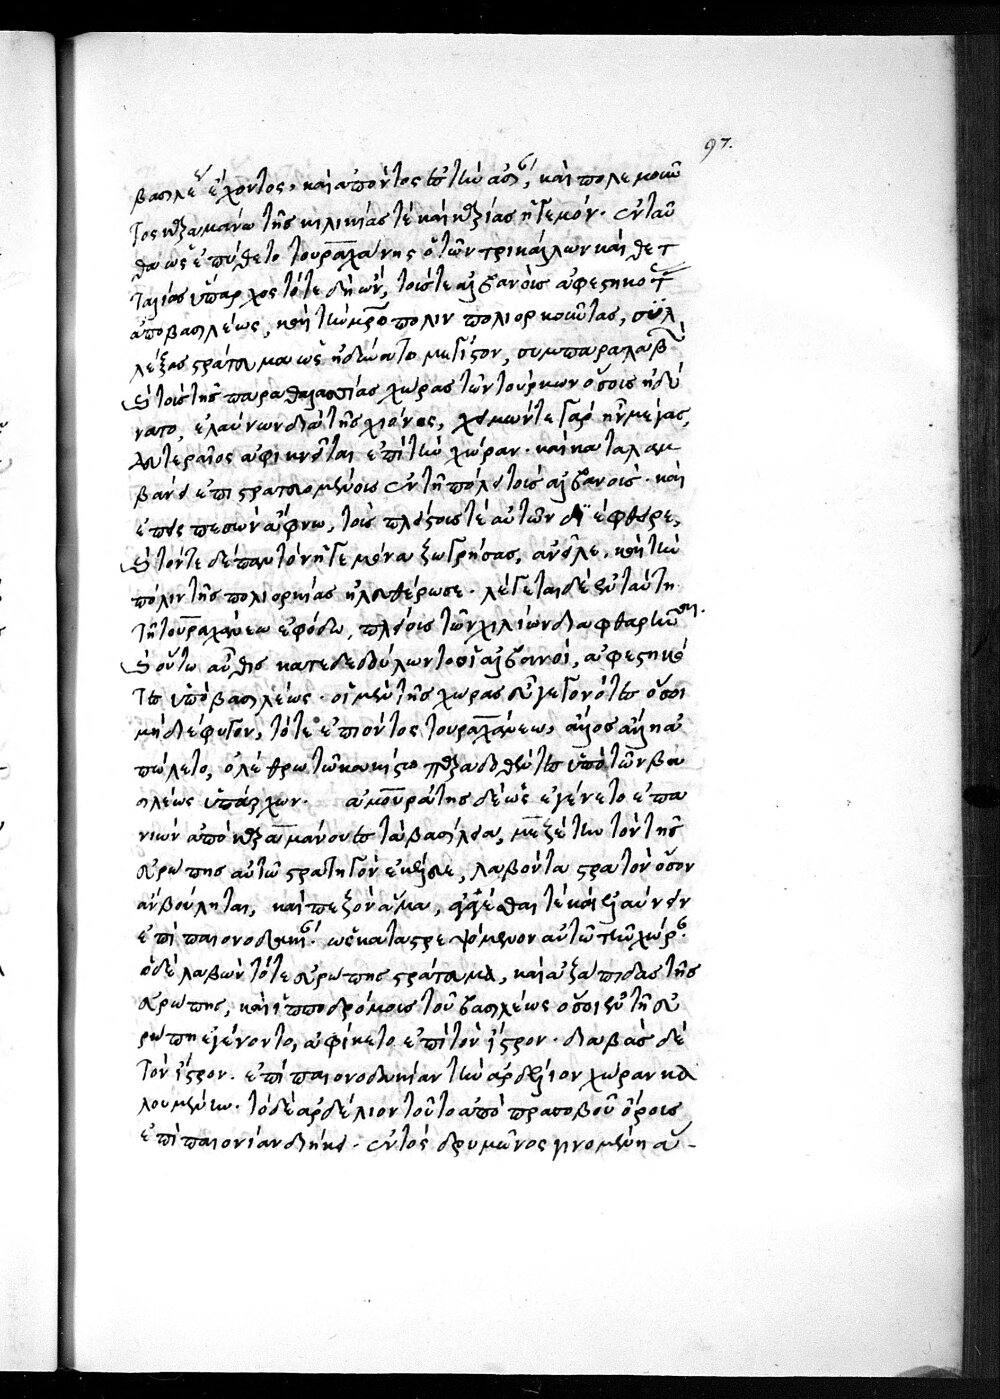 97.
βασιλέως ἔχοντος, καὶ ἀπόντος ἐς τὴν ἀσίαν, καὶ πολεμοῦν
τος καραμάνῳ τῆς κιλικίας τὲ καὶ καρίας ἡγεμόνι. ἐνταῦ
θα ὡς ἐπύθετο τουραχάνης ὁ τῶν τρικάλων καὶ θετ
ταλίας ὕπαρχος τότε δὴ ὢν, τούς τε ἀλβανοὺς ἀφεστηκότας
ἀπὸ βασιλέως, καὶ τὴν μητρόπολιν πολιορκοῦντας, συλ
λέξας στράτευμα ὡς ἠδύνατο μέγιστον, συμπαραλαβὼν
καὶ τοὺς τῆς παραθαλαττίας χώρας τῶν τούρκων ὅσους ἠδύ
νατο, ἐλαύνων διὰ τῆς χιόνος, χειμών τε γὰρ ἦν μέγας,
δευτεραῖος ἀφικνεῖται ἐπὶ τὴν χώραν. καὶ καταλαμ
βάνει ἐπιστρατευομένους ἐν τῇ πόλει τοὺς ἀλβανούς. καὶ
ἐπεισπεσὼν ἄφνω, τοὺς πλείστους τὲ αὐτῶν διέφθειρε,
καὶ τόν τε δέπαν τὸν ἡγεμόνα ζωγρήσας, ἀνεῖλε, καὶ τὴν
πόλιν τῆς πολιορκίας ἠλευθέρωσε. λέγεται δὲ ἐν ταύτῃ
τῇ τουραχάνεω ἐφόδῳ, πλείους τῶν χιλίων διαφθαρῆναι.
καὶ οὕτω αὖθις κατεδεδούλωντο οἱ ἀλβανοὶ, ἀφεστηκό
τες ὑπὸ βασιλέως. οἱ μὲν τῆς χώρας συγγεγονότες ὅσοι
μὴ διέφυγον, τότε ἐπιόντος τουραχάνεω, ἄλλος ἄλλῃ ἀ
πώλετο, ὀλέθρῳ τῷ κακίστῳ παραδοθέντες ὑπὸ τῶν βα
σιλέως ὑπάρχων. ἀμουράτης δὲ ὡς ἐγένετο ἐπα
νιὼν ἀπὸ καραμάνου ἐς τὰ βασίλεια, μεζέτην τὸν τῆς
εὐρώπης αὐτῷ στρατηγὸν ἐκέλευε, λαβόντα στρατὸν ὅσον
ἂν βούληται, καὶ πεζὸν ἅμα, ἀγείρεσθαί τε καὶ ἐλαύνειν
ἐπὶ παιονοδακίαν. ὡς καταστρεψόμενον αὐτῷ τὴν χώραν.
ὁ δὲ λαβὼν τότε εὐρώπης στράτευμα, καὶ ἀζάπιδας τῆς
εὐρώπης, καὶ ἱπποδρόμους τοῦ βασιλέως ὅσοι ἐν τῇ εὐ
ρώπῃ ἐγένοντο, ἀφίκετο ἐπὶ τὸν ἴστρον. διαβὰς δὲ
τὸν ἴστρον. ἐπὶ παιονοδακίαν τὴν ἀρδέλιον χώραν κα
λουμένην. τὸ δὲ ἀρδέλιον τοῦτο ἀπὸ πρασοβοῦ ὄρους
ἐπὶ παιονίαν διήκει. ἐντὸς δρυμῶνος γινομένη αὐ-